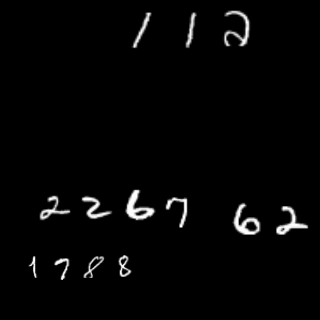 112
2267 62
1788